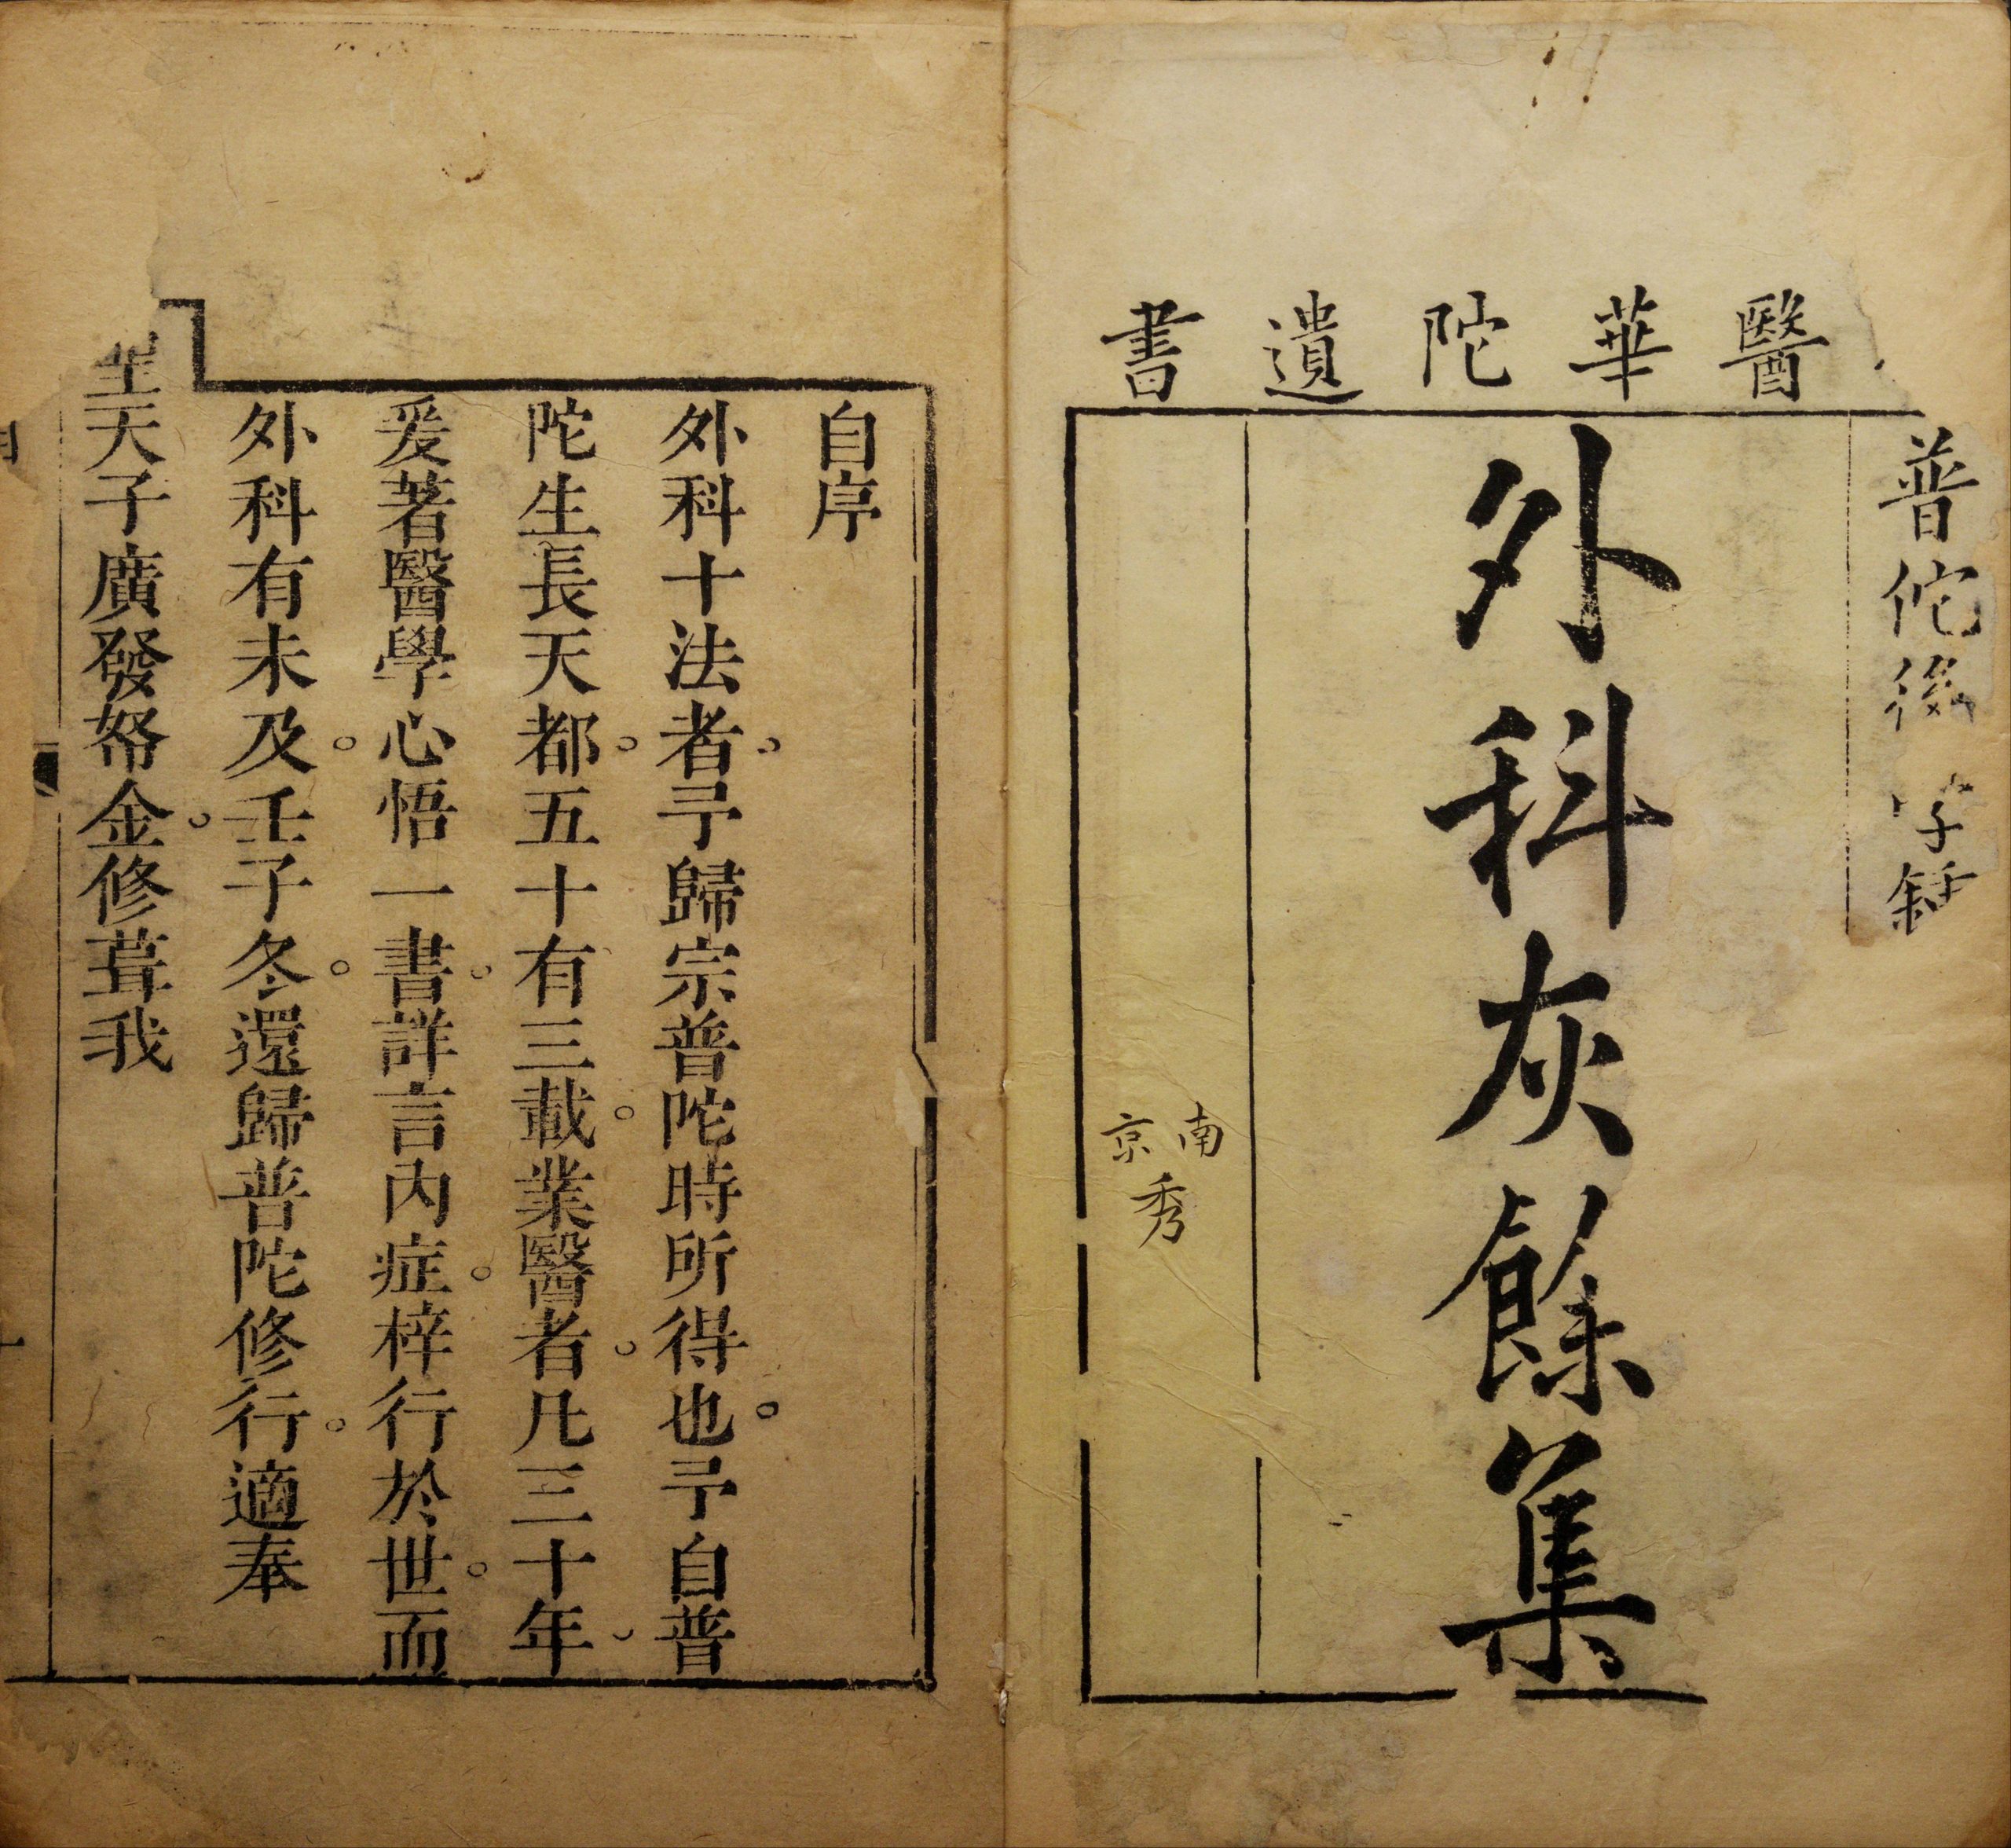 醫華陀遺書
普佗後字
外科灰餘集
南京
秀
自序
外科十法者予歸宗普陀時所得也予自普
陀生長天都五十有三載業醫者凡三十年
爰著醫學心悟一書詳言內症梓行於世而
外科有未及壬子冬還歸普陀修行適奉
聖天子廣發帑金修葺我